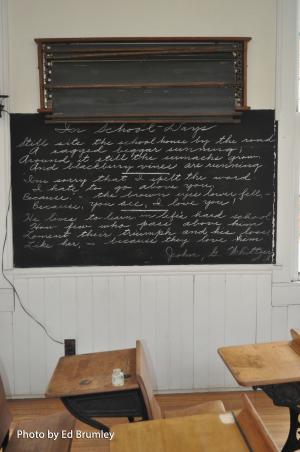 In School Days
Still sits the schoolhouse by the road
A ragged beggar sunning;
Around it still the sumachs grow
And blackberry vines are running
"I'm sorry that I spelt the word:
I hate to go above you,
Because," — the brown eyes lower fell, —
"Because, you see, I love you!"
He lives to learn in life's hard school
How few who pass above him
Lament their triumph and his loss
Like her, — because they love him
John G. Whittier
Photo by Ed Brumley